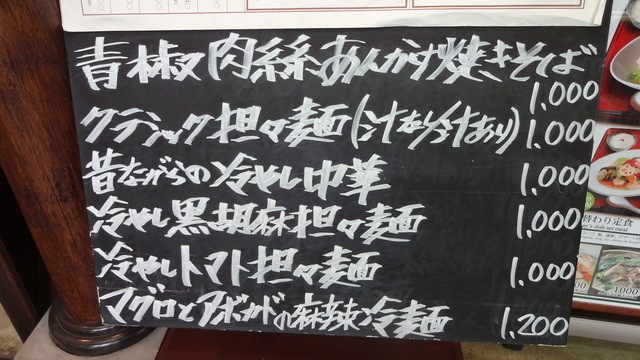 青椒肉絲あんかけ焼きそば
1,000
クラシック担々麺(汁なし/汁あり) 1,000
昔ながらの冷やし中華 1,000
冷やし黒胡麻担々麺 1,000
冷やしトマト担々麺 1,000
マグロとアボカドの麻辣冷麺 1,200
替わり定食